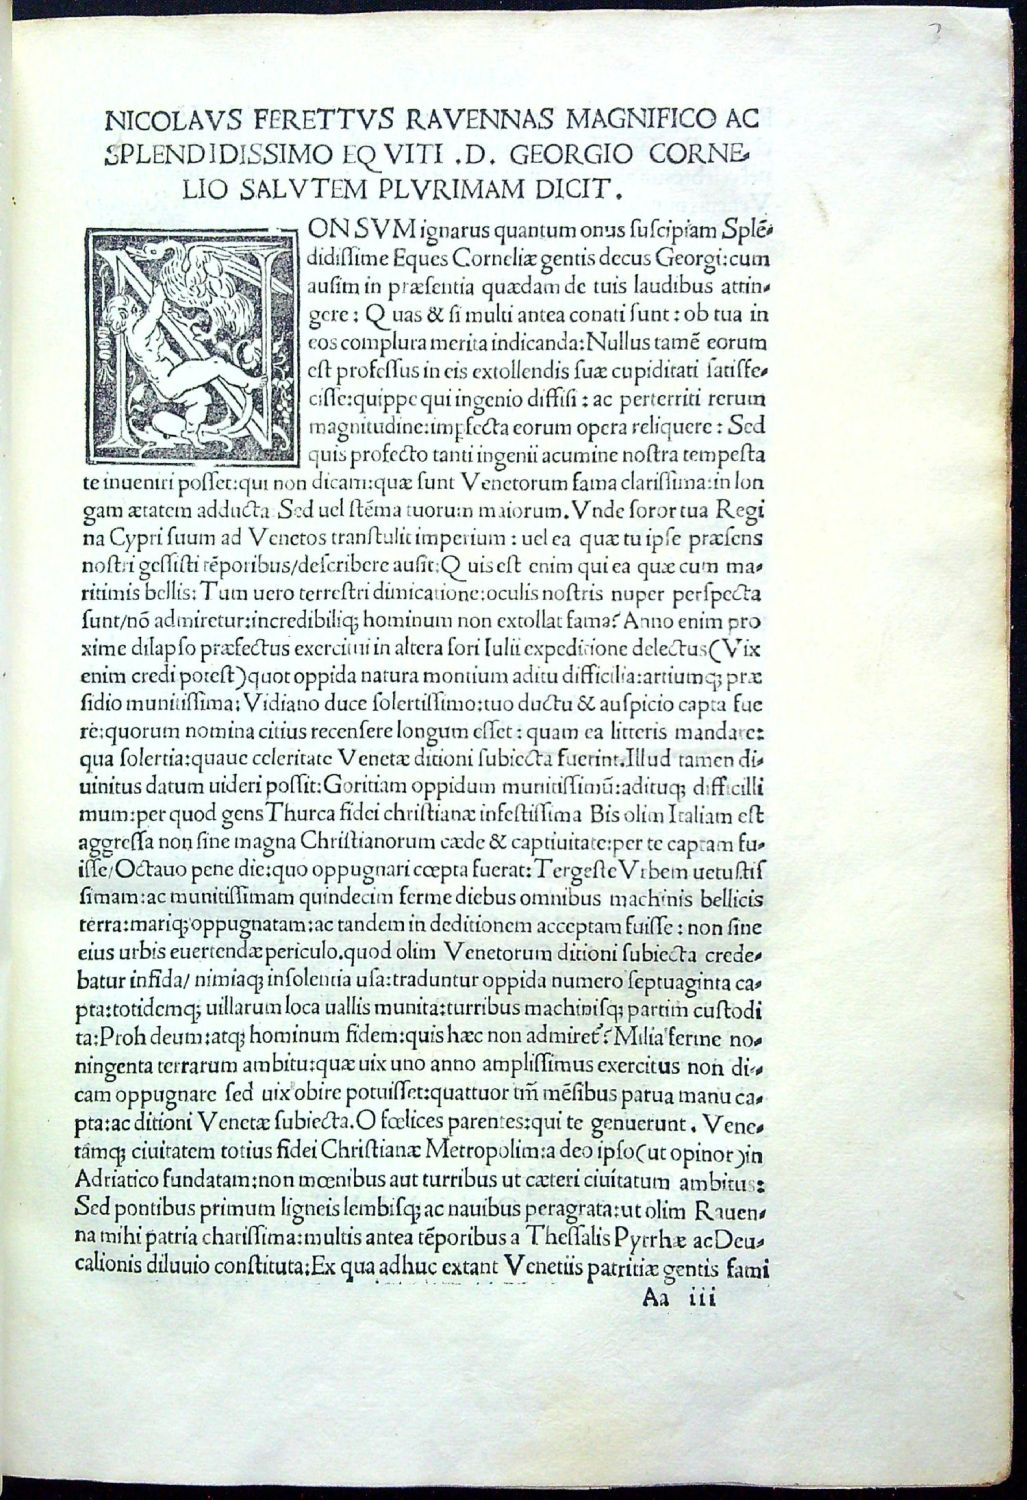 NICOLAVS FERETTVS RAVENNAS MAGNIFICO AC
SPLENDIDISSIMO EQVITI .D. GEORGIO CORNE-
LIO SALVTEM PLVRIMAM DICIT.
NON SVM ignarus quantum onus suscipiam Splē-
didissime Eques Corneliæ gentis decus Georgi:cum
ausim in præsentia quædam de tuis laudibus attin-
gere: Quas & si multi antea conati sunt: ob tua in
eos complura merita indicanda:Nullus tamē eorum
est professus in eis extollendis suæ cupiditati satisfe-
cisse:quippe qui ingenio diffisi: ac perterriti rerum
magnitudine:imꝑfecta eorum opera reliquere: Sed
quis profecto tanti ingenii acumine nostra tempesta
te inueniri posset:qui non dicam:quæ sunt Venetorum fama clarissima:in lon
gam ætatem adducta Sed uel stēma tuorum maiorum. Vnde soror tua Regi
na Cypri suum ad Venetos transtulit imperium: uel ea quæ tu ipse præsens
nostri gessisti tēporibus/describere ausit:Quis est enim qui ea quæ cum ma-
ritimis bellis: Tum uero terrestri dimicatione:oculis nostris nuper perspecta
sunt/nō admiretur:incredibiliqꝫ hominum non extollat fama? Anno enim pro
xime dilapso præfectus exercitui in altera fori Iulii expeditione delectus(Vix
enim credi potest)quot oppida natura montium aditu difficilia:artiumqꝫ præ
sidio munitissima: Vidiano duce solertissimo:tuo ductu & auspicio capta fue
re:quorum nomina citius recensere longum esset: quam ea litteris mandare:
qua solertia:quaue celeritate Venetæ ditioni subiecta fuerint.Illud tamen di-
uinitus datum uideri possit:Goritiam oppidum munitissimū:adituqꝫ difficilli
mum:per quod gens Thurca fidei christianæ infestissima Bis olim Italiam est
aggressa non sine magna Christianorum cæde & captiuitate:per te captam fu-
isse/Octauo pene die:quo oppugnari cœpta fuerat: Tergeste Vrbem uetustis
simam:ac munitissimam quindecim ferme diebus omnibus machinis bellicis
terra:mariqꝫ oppugnatam:ac tandem in deditionem acceptam fuisse: non sine
eius urbis euertendæ periculo.quod olim Venetorum ditioni subiecta crede-
batur infida/ nimiaqꝫ insolentia usa:traduntur oppida numero septuaginta ca-
pta:totidemqꝫ uillarum loca uallis munita:turribus machinisqꝫ partim custodi
ta:Proh deum:atqꝫ hominum fidem:quis hæc non admiret᷑? Milia ferme no-
ningenta terrarum ambitu:quæ uix uno anno amplissimus exercitus non di-
cam oppugnare sed uix obire potuisset:quattuor tm̄ mēsibus parua manu ca-
pta:ac ditioni Venetæ subiecta.O fœlices parentes:qui te genuerunt. Vene-
tamqꝫ ciuitatem totius fidei Christianæ Metropolim:a deo ipso(ut opinor)in
Adriatico fundatam:non mœnibus aut turribus ut cæteri ciuitatum ambitus:
Sed pontibus primum ligneis lembisqꝫ ac nauibus peragrata:ut olim Rauen-
na mihi patria charissima:multis antea tēporibus a Thessalis Pyrrhæ ac Deu-
calionis diluuio constituta:Ex qua adhuc extant Venetiis patritiæ gentis fami
Aa iii